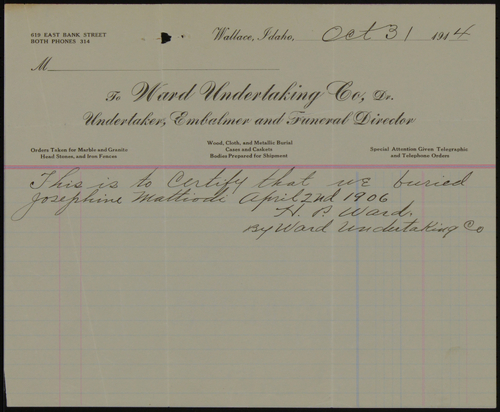 619 EAST BANK STREET
BOTH PHONES 314
Wallace, Idaho, Oct 31 1914
M
To Ward Undertaking Co, Dr.
Undertaker, Embalmer and Funeral Director
Orders Taken for Marble and Granite
Head Stones, and Iron Fences
Wood, Cloth, and Metallic Burial
Cases and Caskets
Bodies Prepared for Shipment
Special Attention Given Telegraphic
and Telephone Orders
This is to Certify that we buried
Josephine Mattiodi April 2nd 1906
H. P. Ward.
By Ward Undertaking Co